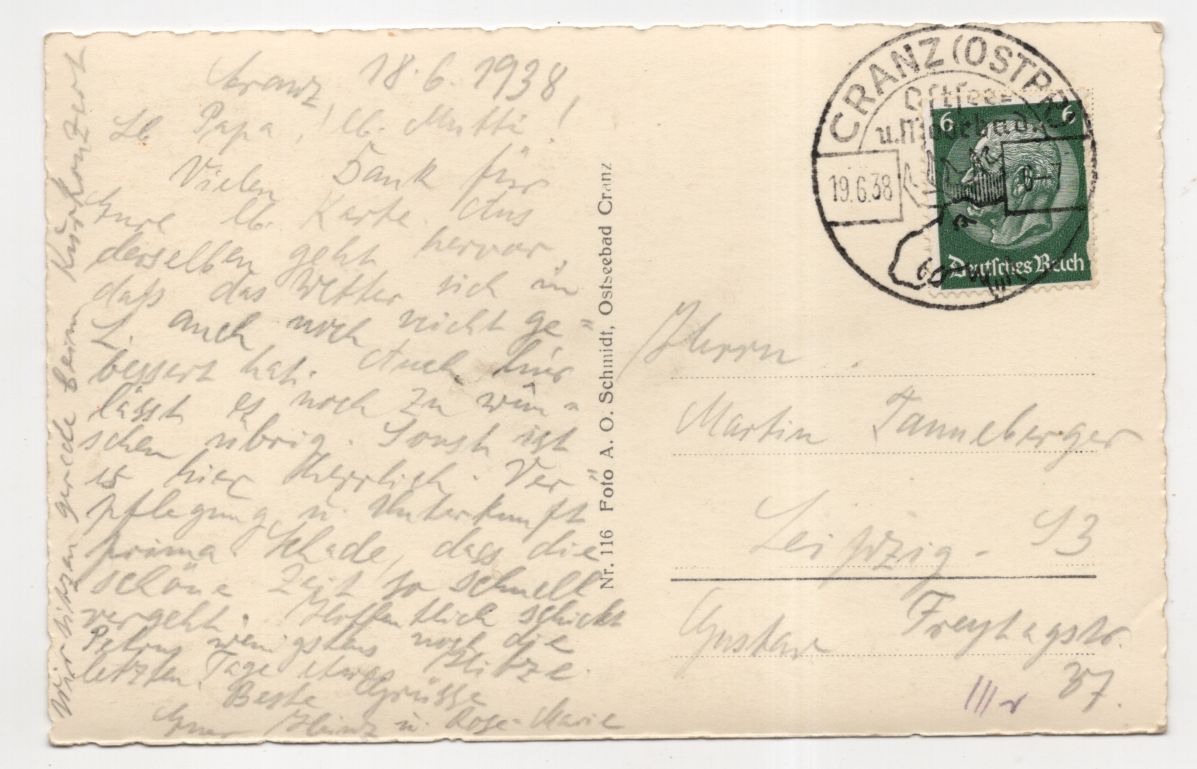 Cranz, 18.6.1938
Lb. Papa! lb. Mutti!
Vielen Dank für
Eure lb. Karte. Aus
derselben geht hervor,
daß das Wetter sich in
L. auch noch nicht ge=
bessert hat. Auch hier
lässt es noch zu wün=
schen übrig. Sonst ist
es hier herrlich. Ver=
pflegung u. Unterkunft
prima. Schade, dass die
schöne Zeit so schnell
vergeht. Hoffentlich schickt
Petrus wenigstens noch die
letzten Tage etwas Hitze.
Beste Grüsse
Eure Heinz u. Rose-Marie
Wir sitzen gerade beim Kurkonzert
Nr. 116 Foto A. O. Schmidt, Ostseebad Cranz
CRANZ (OSTPR.)
Ostsee=
u. Moorbad
19.6.38
6
6
Deutsches Reich
Herrn
Martin Tanneberger
Leipzig - S3
Gustav Freytagstr.
37.